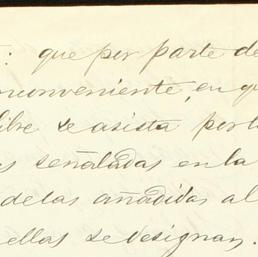 : que por parte de
inconveniente, en qu
libre se asista por l
s señaladas en la
de las añadidas al
ellas se designan.